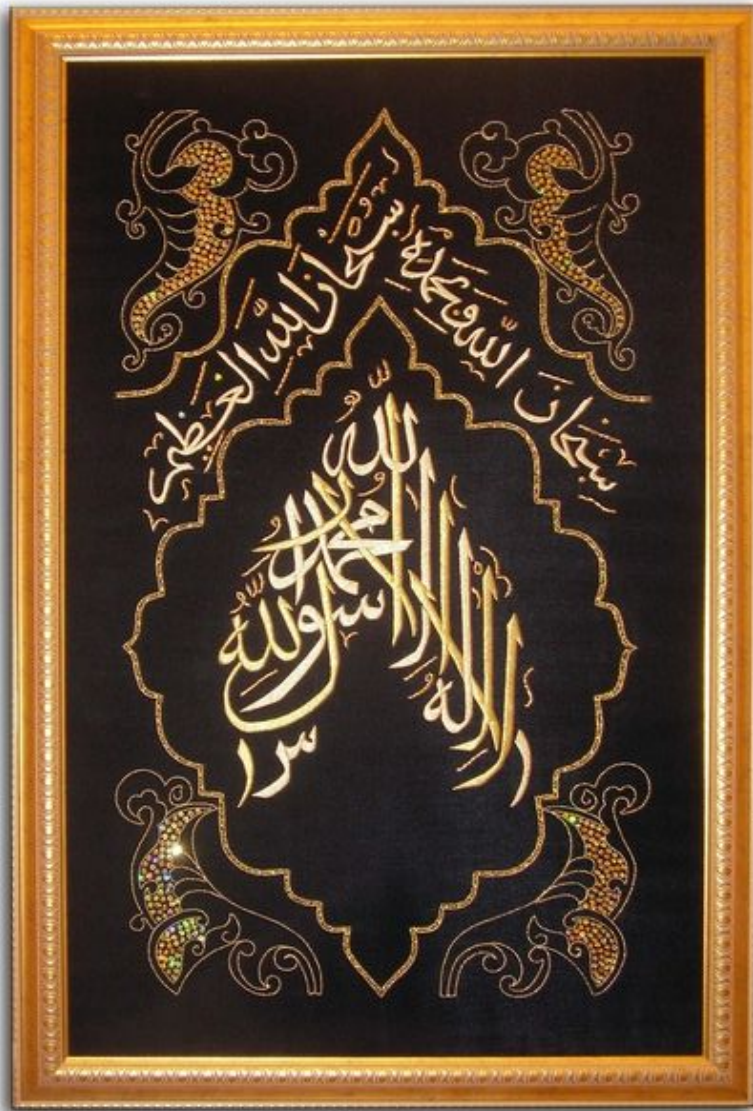 سُبْحَانَ اللّٰهِ وَبِحَمْدِهِ
سُبْحَانَ اللّٰهِ الْعَظِيمِ
لا إله إلا اللّٰه
محمد رسول اللّٰه